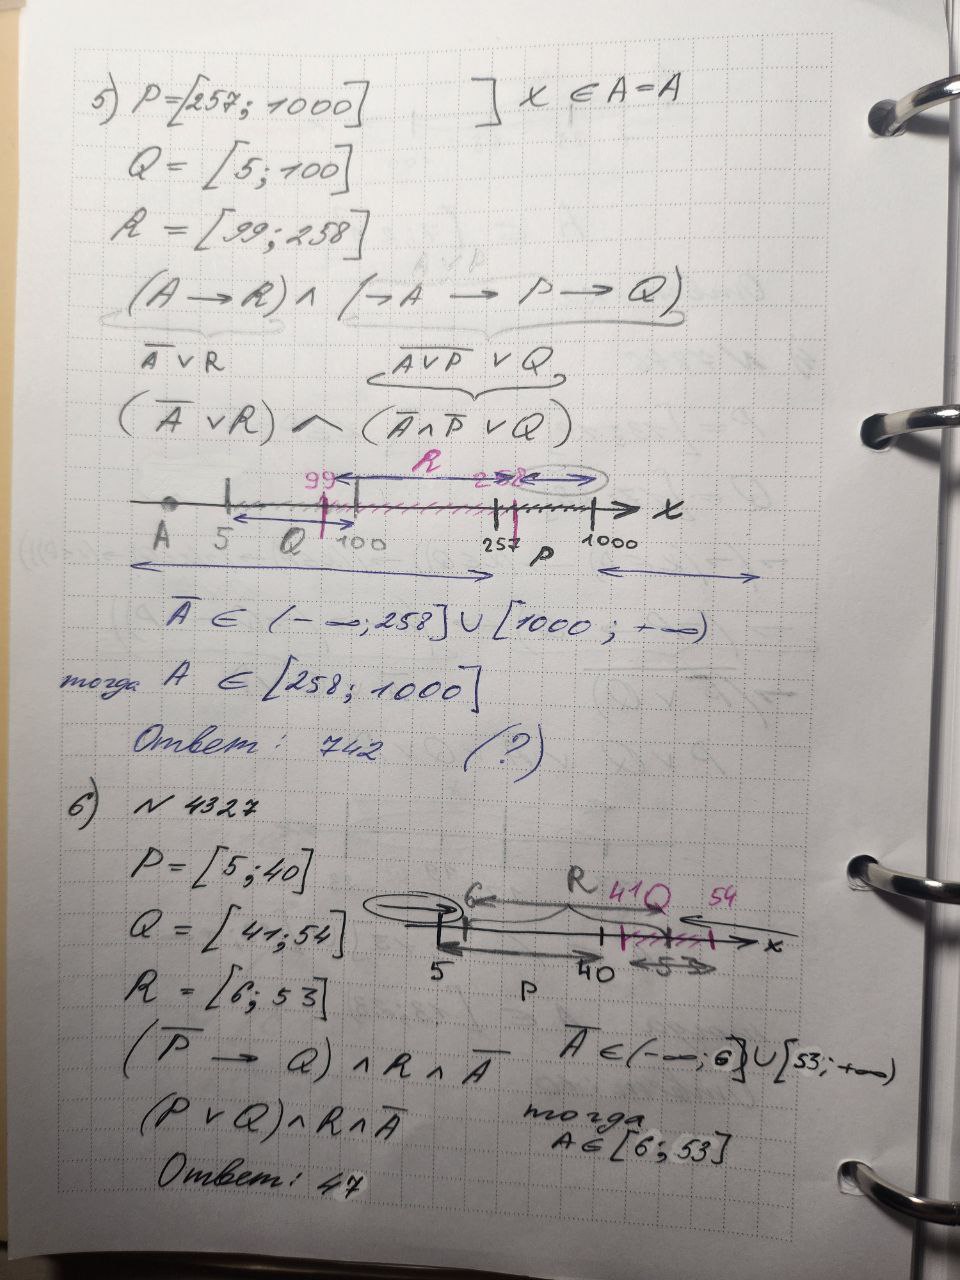 5) P=[257; 1000] ] x ∈ A = A
Q = [5; 100]
R = [99; 258]
(A → R) ∧ (¬A → P → Q)
A̅ ∨ R A̅ ∨ P̅ ∨ Q
(A̅ ∨ R) ∧ (A̅ ∧ P̅ ∨ Q)
99 R 258
A 5 Q 100 257 P 1000 x
A̅ ∈ (-∞; 258] ∪ [1000; +∞)
тогда A ∈ [258; 1000]
Ответ: 742 (?)
6) N 4327
P = [5; 40]
6 R 41 Q 54
Q = [41; 54]
5 P 40 53 x
R = [6; 53]
(P̅ → Q) ∧ R ∧ A̅
A̅ ∈ (-∞; 6] ∪ [53; +∞)
(P ∨ Q) ∧ R ∧ A̅
тогда
A ∈ [6; 53]
Ответ: 47